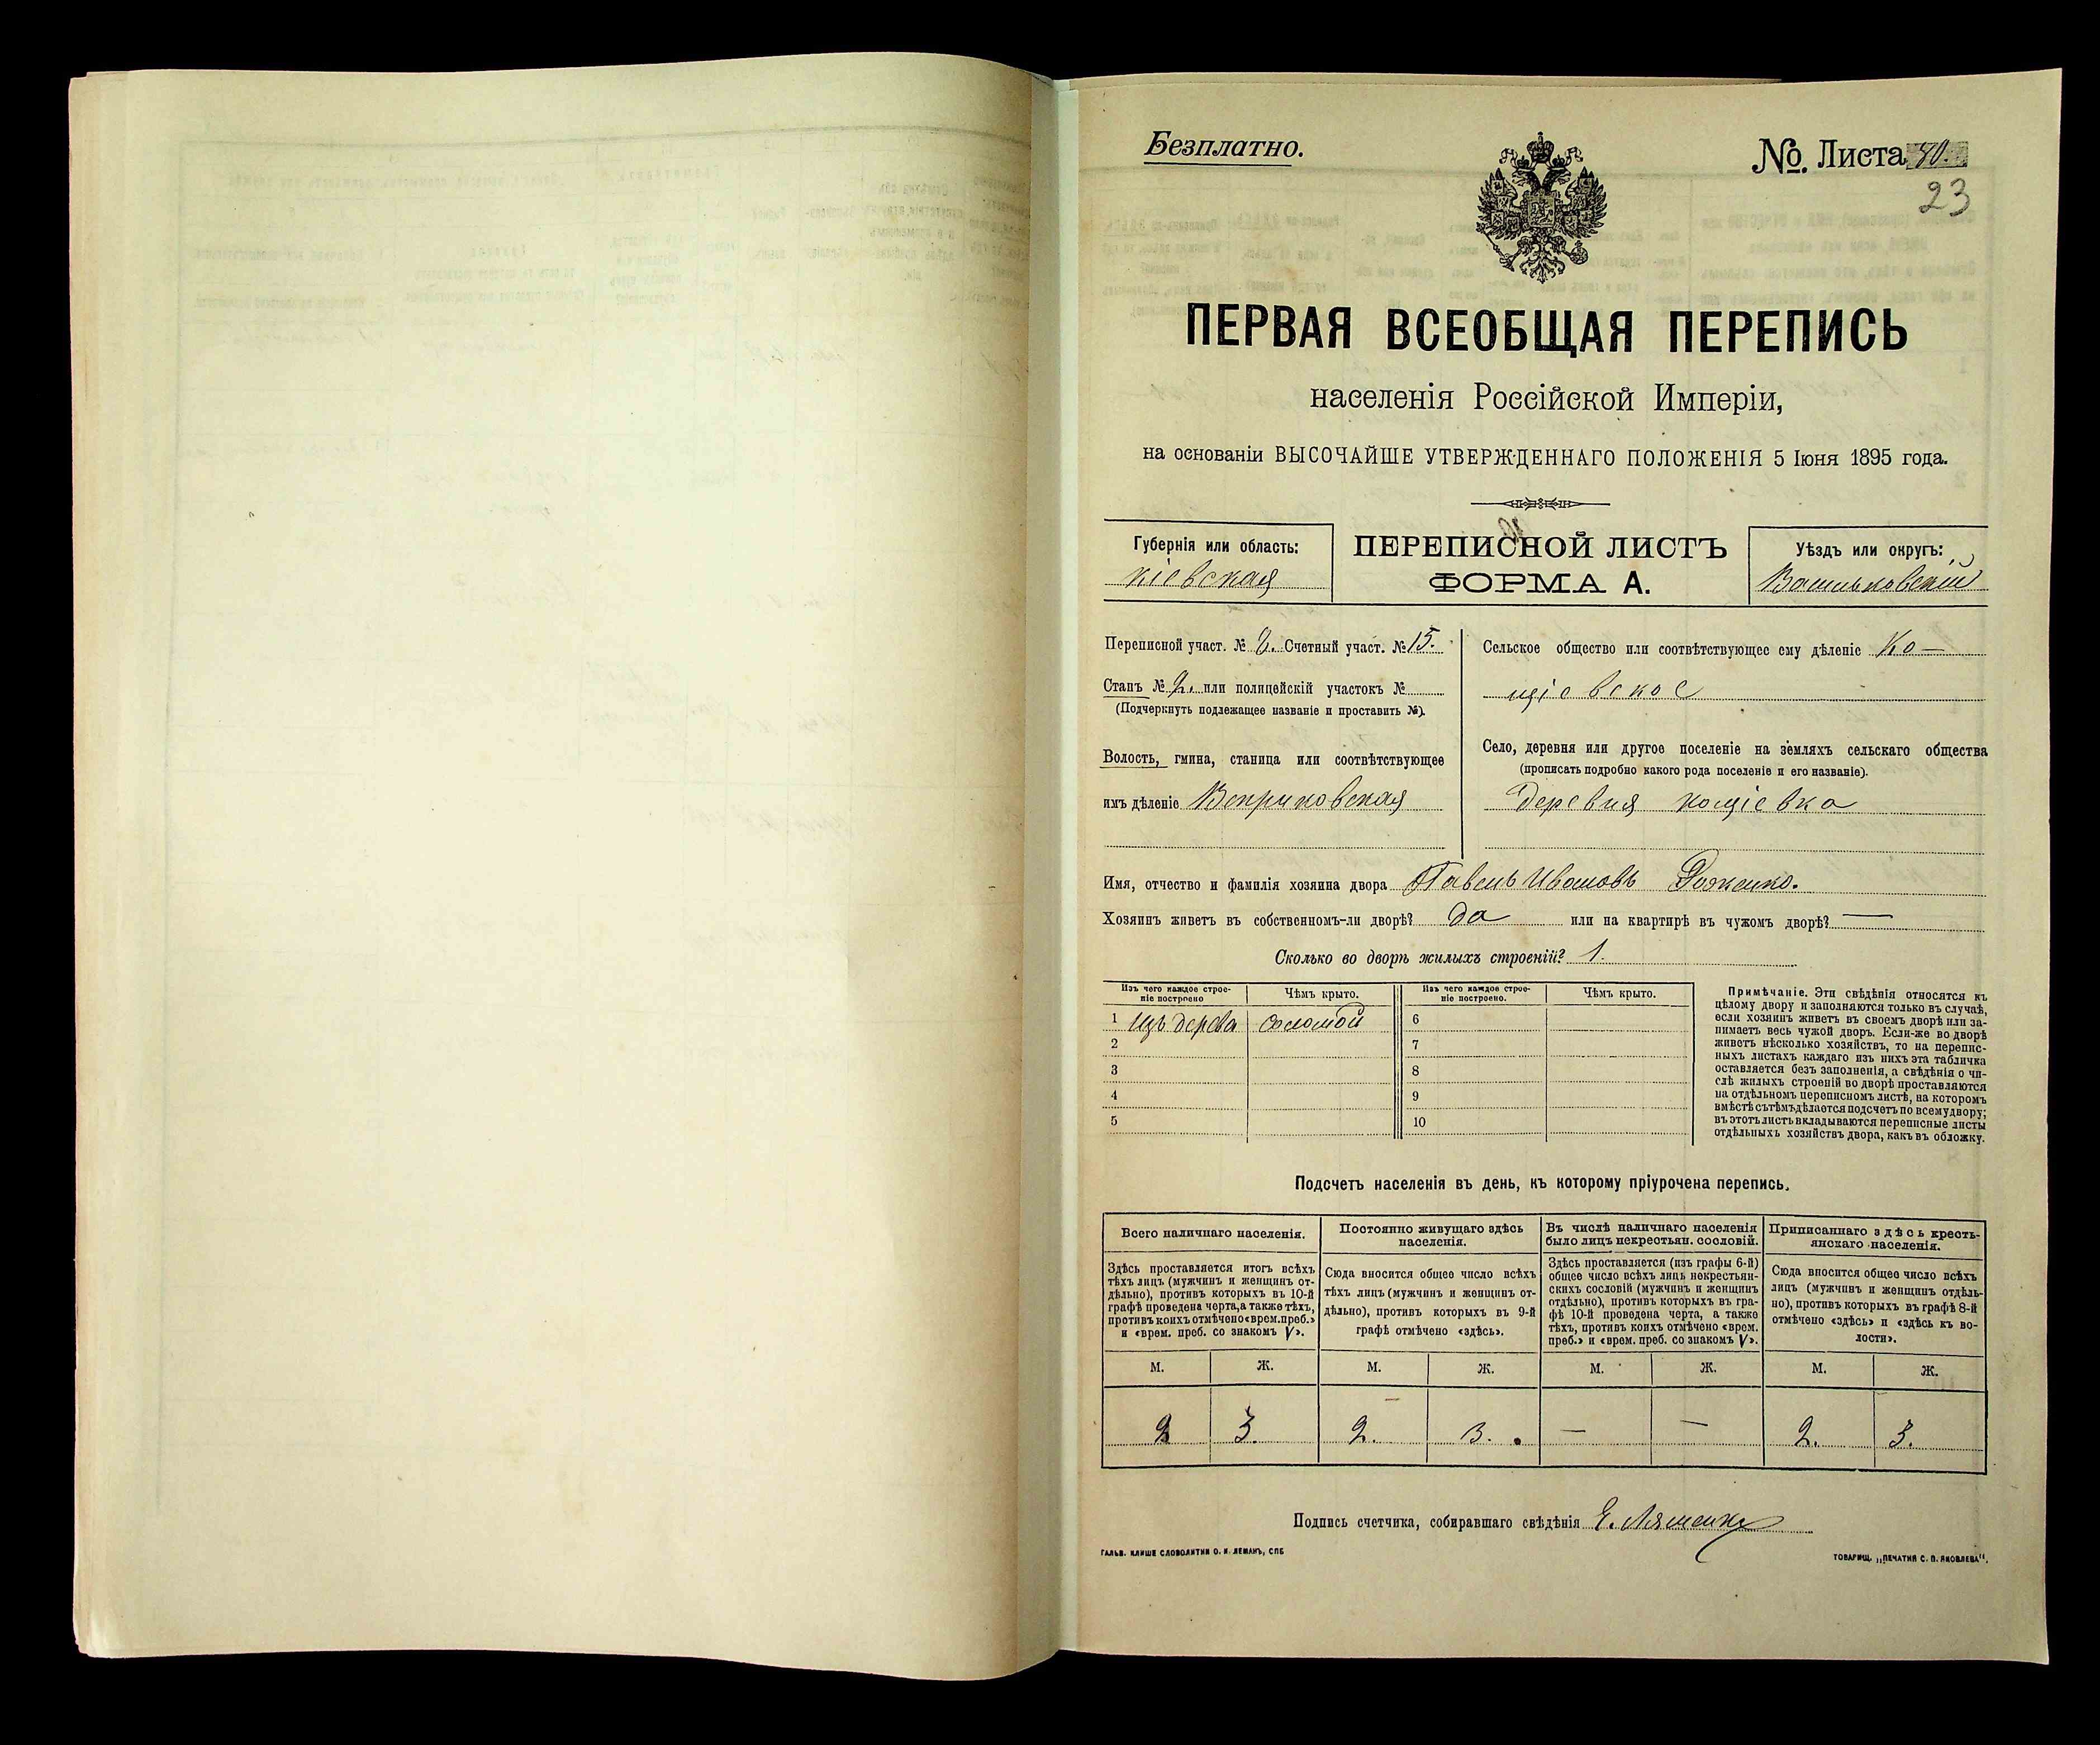 Безплатно.
№. Листа 40.
23
ПЕРВАЯ ВСЕОБЩАЯ ПЕРЕПИСЬ
населенія Россійской Имперіи,
на основаніи ВЫСОЧАЙШЕ УТВЕРЖДЕННАГО ПОЛОЖЕНІЯ 5 Іюня 1895 года.
Губернія или область:
кіевская
ПЕРЕПИСНОЙ ЛИСТЪ
ФОРМА А.
Уѣздъ или округъ:
Васильковскій
Переписной участ. № 2. Счетный участ. № 15.
Станъ № 2. или полицейскій участокъ №
(Подчеркнуть подлежащее названіе и проставить №).
Волость, гмина, станица или соотвѣтствующее
имъ дѣленіе Веприковская
Сельское общество или соотвѣтствующее ему дѣленіе Ко—
щіевское
Село, деревня или другое поселеніе на земляхъ сельскаго общества
(прописать подробно какого рода поселеніе и его названіе).
деревня кощіевка
Имя, отчество и фамилія хозяина двора Павелъ Ивановъ
Хозяинъ живетъ въ собственномъ-ли дворѣ? да или на квартирѣ въ чужомъ дворѣ? —
Сколько во дворѣ жилыхъ строеній? 1.
Изъ чего каждое строе-
ніе построено
Чѣмъ крыто.
Изъ чего каждое строе-
ніе построено.
Чѣмъ крыто.
1 изъ дерева соломой 6
2 7
3 8
4 9
5 10
Примѣчаніе. Эти свѣдѣнія относятся къ
цѣлому двору и заполняются только въ случаѣ,
если хозяинъ живетъ въ своемъ дворѣ или за-
нимаетъ весь чужой дворъ. Если-же во дворѣ
живетъ нѣсколько хозяйствъ, то на перепис-
ныхъ листахъ каждаго изъ нихъ эта табличка
оставляется безъ заполненія, а свѣдѣнія о чи-
слѣ жилыхъ строеній во дворѣ проставляются
на отдѣльномъ переписномъ листѣ, на которомъ
вмѣстѣ съ тѣмъ дѣлается подсчетъ по всему двору;
въ этотъ листъ вкладываются переписные листы
отдѣльныхъ хозяйствъ двора, какъ въ обложку.
Подсчетъ населенія въ день, къ которому пріурочена перепись.
Всего наличнаго населенія.
Здѣсь проставляется итогъ всѣхъ
тѣхъ лицъ (мужчинъ и женщинъ от-
дѣльно), противъ которыхъ въ 10-й
графѣ проведена черта, а также тѣхъ,
противъ коихъ отмѣчено «врем. преб.»
и «врем. преб. со знакомъ V».
Постоянно живущаго здѣсь
населенія.
Сюда вносится общее число всѣхъ
тѣхъ лицъ (мужчинъ и женщинъ от-
дѣльно), противъ которыхъ въ 9-й
графѣ отмѣчено «здѣсь».
Въ числѣ наличнаго населенія
было лицъ некрестьян. сословій.
Здѣсь проставляется (изъ графы 6-й)
общее число всѣхъ лицъ некрестьян-
скихъ сословій (мужчинъ и женщинъ
отдѣльно), противъ которыхъ въ гра-
фѣ 10-й проведена черта, а также
тѣхъ, противъ коихъ отмѣчено «врем.
преб.» и «врем. преб. со знакомъ V».
Приписаннаго здѣсь кресть-
янскаго населенія.
Сюда вносится общее число всѣхъ
лицъ (мужчинъ и женщинъ отдѣль-
но), противъ которыхъ въ графѣ 8-й
отмѣчено «здѣсь» и «здѣсь къ во-
лости».
М. Ж. М. Ж. М. Ж. М. Ж.
2 3. 2. 3. — — 2. 3.
Подпись счетчика, собиравшаго свѣдѣнія
ГАЛЬВ. КЛИШЕ СЛОВОЛИТНИ О. И. ЛЕМАНЪ, СПБ
ТОВАРИЩ. „ПЕЧАТНЯ С. П. ЯКОВЛЕВА“.